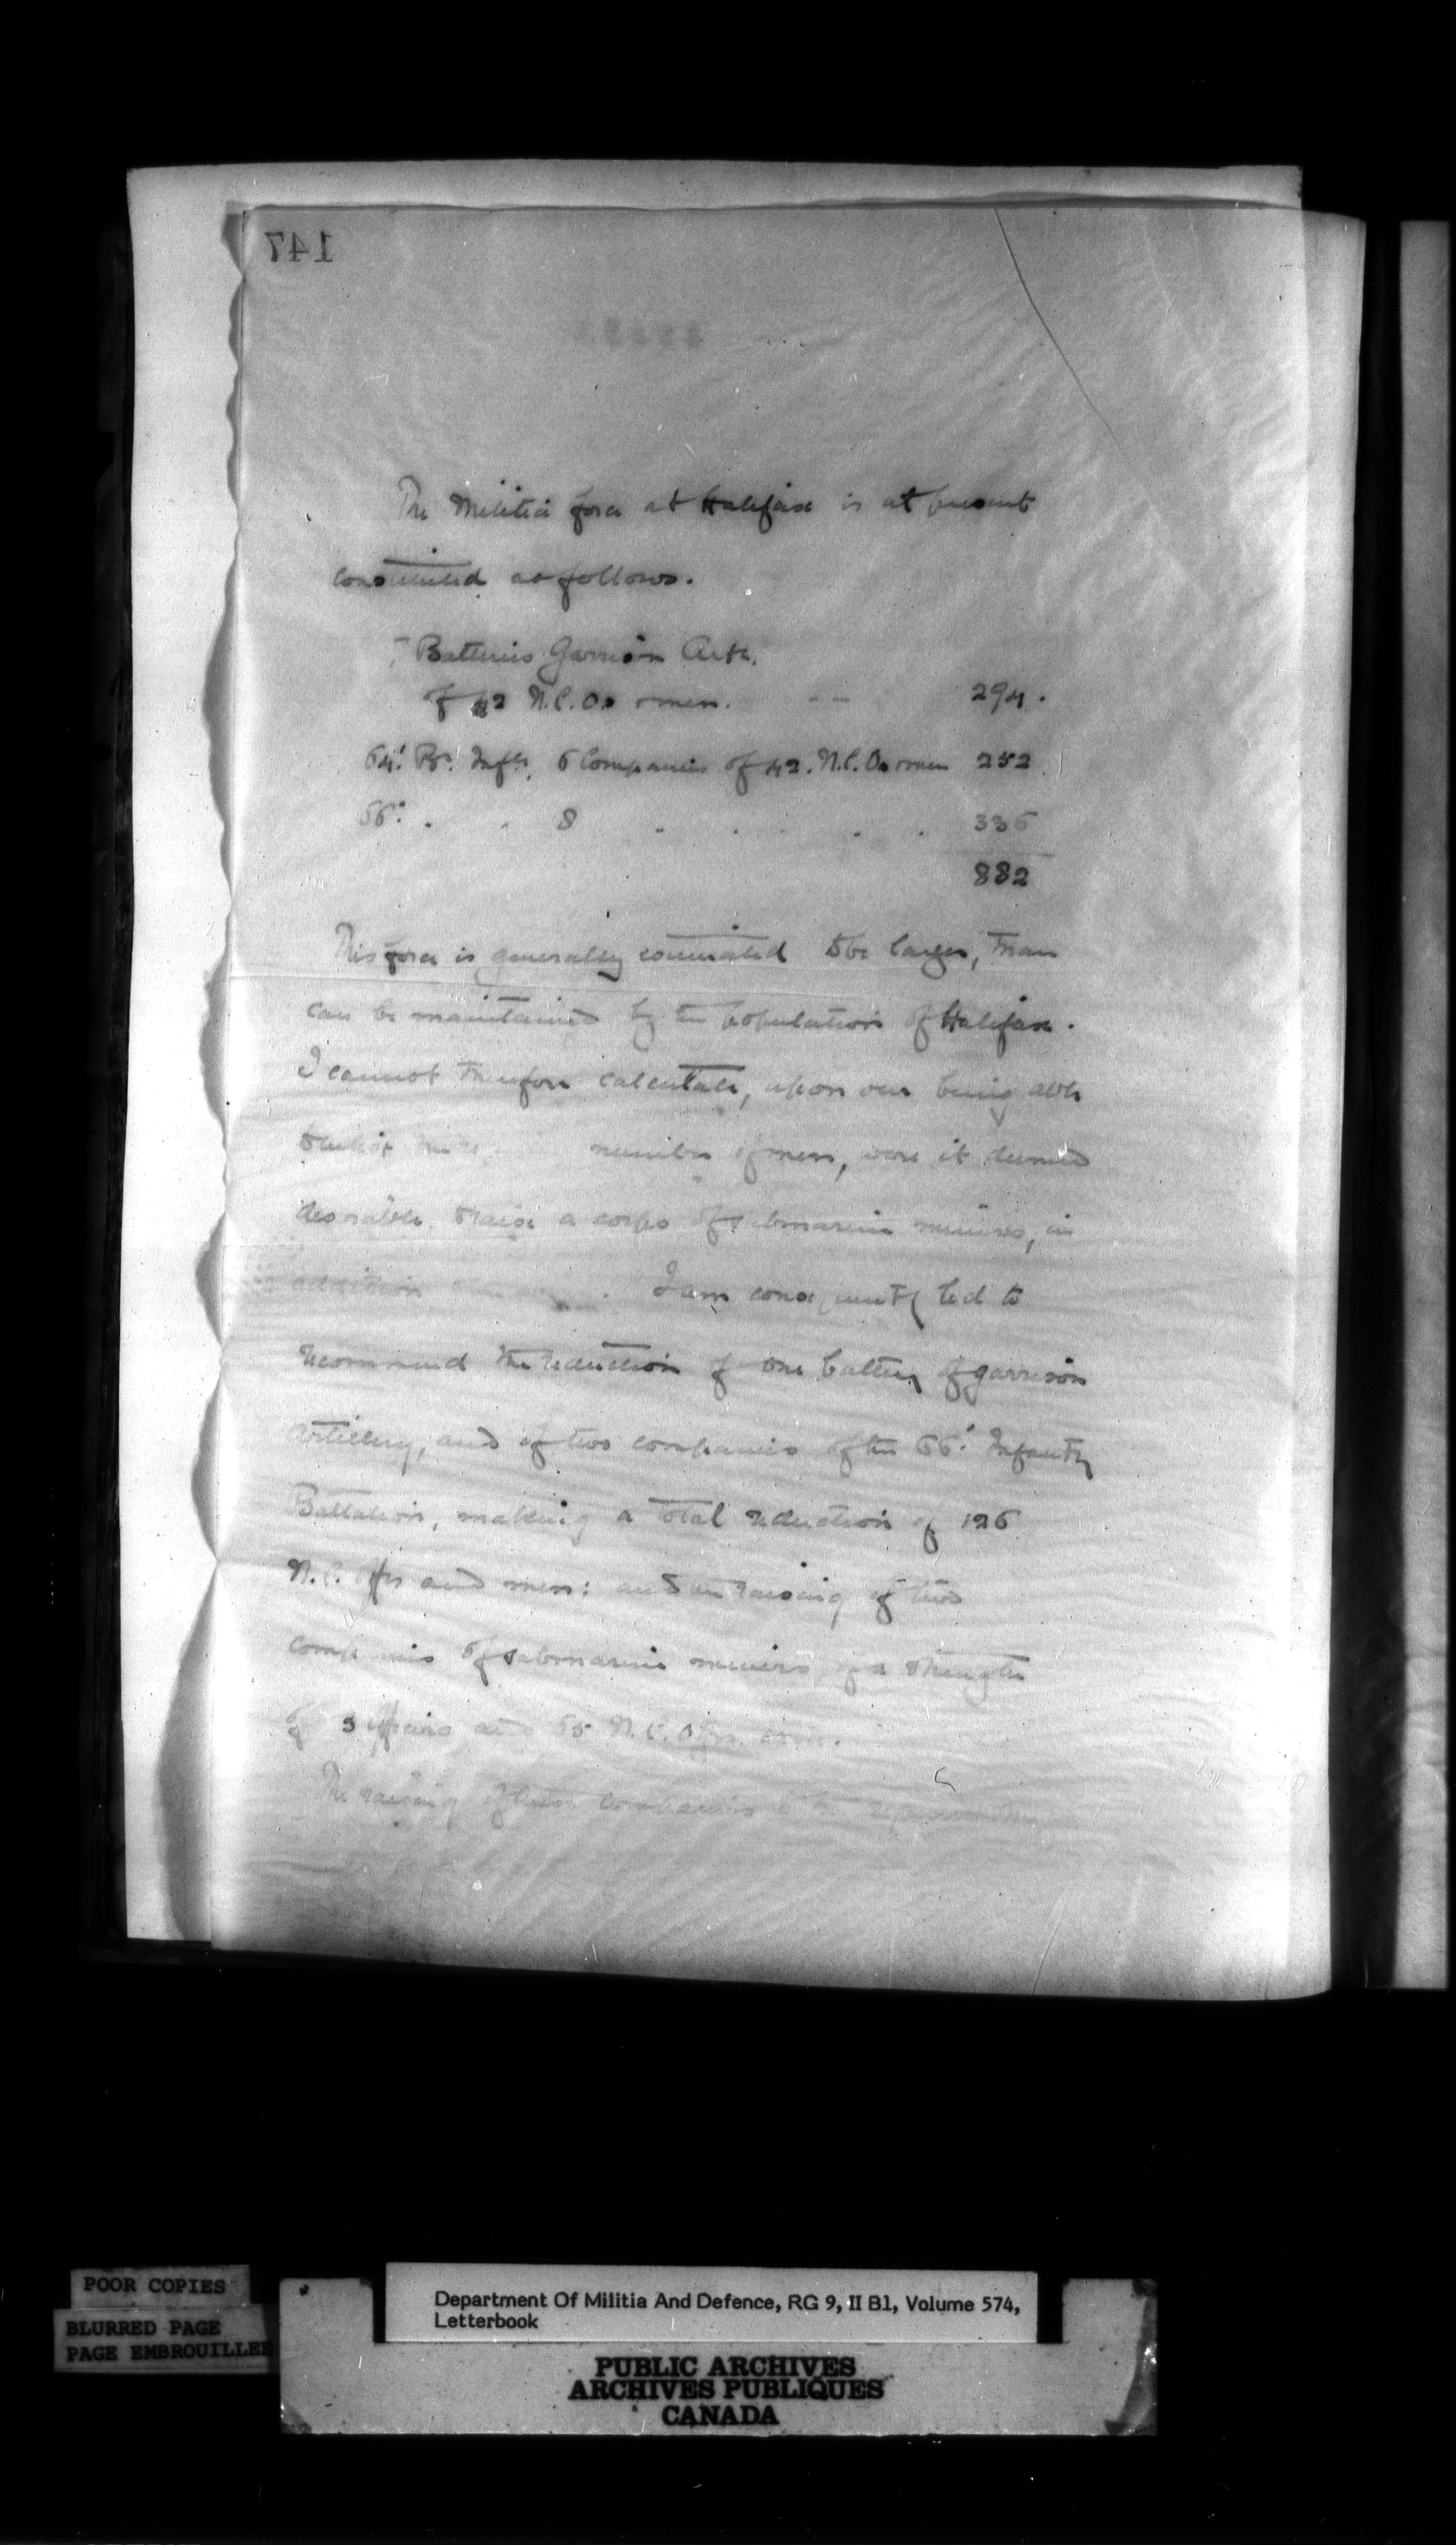 147
The Militia force at Halifax is at present
constituted as follows.
7 Batteries Garrison Art.
of 42 N.C.Os & men. -- 294.
Bn. Infy. 6 Companies of 42. N.C.Os & men 252
8 336
882
This force is generally considered to be larger, than
can be maintained by the population of Halifax.
I cannot therefore calculate, upon our being able
number of men, were it deemed
desirable, to raise a corps of submarine miners, in
addition I am consequently led to
recommend the reduction of one battery of garrison
artillery, and of two companies of the 66' Infantry
Battalion, making a total reduction of 126
N.C. Offrs and men: and the raising of two
companies of submarine miners, of a strength
of 3 officers and N.C. Offrs
The raising of these companies to be
POOR COPIES
BLURRED PAGE
PAGE EMBROUILLEE
Department Of Militia And Defence, RG 9, II B1, Volume 574,
Letterbook
PUBLIC ARCHIVES
ARCHIVES PUBLIQUES
CANADA